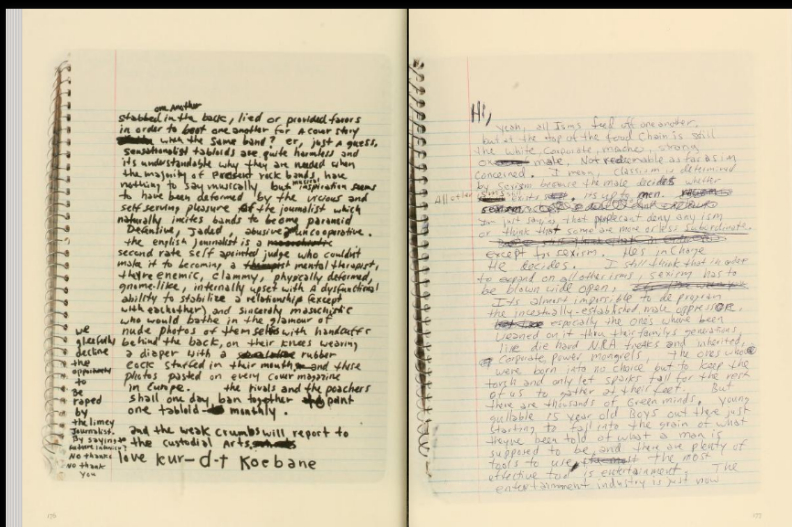 one another
stabbed in the back, lied or provided favors
in order to beat one another for a cover story
with the same band? er, just a guess,
sensationalist tabloids are quite harmless and
its understandable why they are needed when
the majority of present rock bands, have
nothing to say musically but inspiration seems
to have been deformed by the vicious and
self serving pleasure of the journalist which
naturally incites bands to become paranoid
Jaded, abusive uncooperative.
the english journalist is a
second rate self apointed judge who couldnt
make it to becoming a mental therapist,
theyre enemic, clammy, physically deformed,
gnome-like, internally upset with a dysfunctional
ability to stabilize a relationship (except
with eachother) and sincerely masochistic
who would bathe in the glamour of
nude photos of themselves with handcuffs
behind the back, on their knees wearing
a diaper with a rubber
cock stuffed in their mouth and these
photos pasted on every cover magazine
in Europe. the rivals and the poachers
shall one day ban together and print
one tabloid monthly.
and the weak crumbs will report to
the custodial arts
love Kur-d-t Koebane
we
gleefully
decline
the
to
be
raped
by
the limey
Journalist,
By saying to
No thanks
No thank
you
176
Hi,
yeah, all Isms feed off one another.
but at the top of the food Chain is still
the white, corporate, macho, strong
ox male. Not redeemable as far as im
concerned. I mean, classism is determined
by sexism because the male decides whether
All other isms exist. its up to men.
Im Just saying, that people cant deny any ism
or think that some are more or less subordinate.
except for sexism. Hes in Charge
He decides. I still think that in order
to expand on all other isms, sexism has to
be blown wide open,
Its almost impossible to de program
the incestually-established, male oppressor,
especially the ones whove been
weaned on it thru their familys generations,
like die hard NRA freaks and inherited,
Corporate power mongrels, the ones who
were born into no choice but to keep the
torch and only let sparks fall for the rest
of us to gather at their feet. But
there are thousands of Green minds, young
gullable 15 year old Boys out there just
starting to fall into the grain of what
theyve been told of what a man is
supposed to be, and there are plenty of
tools to use, the most
effective tool is entertainment. The
entertainment industry is just now
177